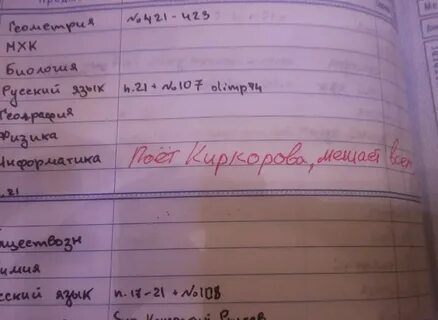 Геометрия №421-423
МХК
Биология
Русский язык п.21 + №107 olimp74
География
Физика
Информатика Поёт Киркорова, мешает всем
п.21
Обществозн
Химия
Русский язык п.17-21 + №108